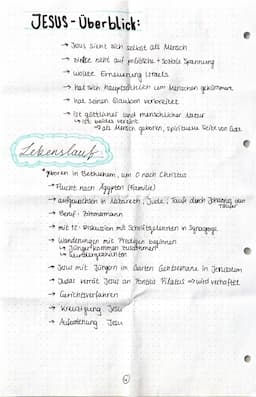 JESUS - Überblick:
→ Jesus sieht sich selbst als Mensch
→ zielte nicht auf politische + soziale Spannung
→ wollte Erneuerung Israels
→ hat sich hauptsächlich um Menschen gekümmert
→ hat seinen Glauben verbreitet
→ ist göttlicher und menschlicher Natur
↳ ist beides vereint
→ als Mensch geboren, spirituelle Seite von Gott
Lebenslauf:
*geboren in Bethlehem, um 0 nach Christus
→ Flucht nach Ägypten (Familie)
→ aufgewachsen in Nazareth, Jude, Taufe durch Johannes den Täufer
→ Beruf: Zimmermann
→ mit 12: Diskussion mit Schriftgelehrten in Synagoge
→ Wanderungen mit Predigen beginnen
↳ Jünger kommen zusammen
↳
→ Jesus mit Jüngern im Garten Gethsemane in Jerusalem
→ Judas verrät Jesus an Pontius Pilatus → wird verhaftet
→ Gerichtsverfahren
→ Kreuzigung Jesu
→ Auferstehung Jesu